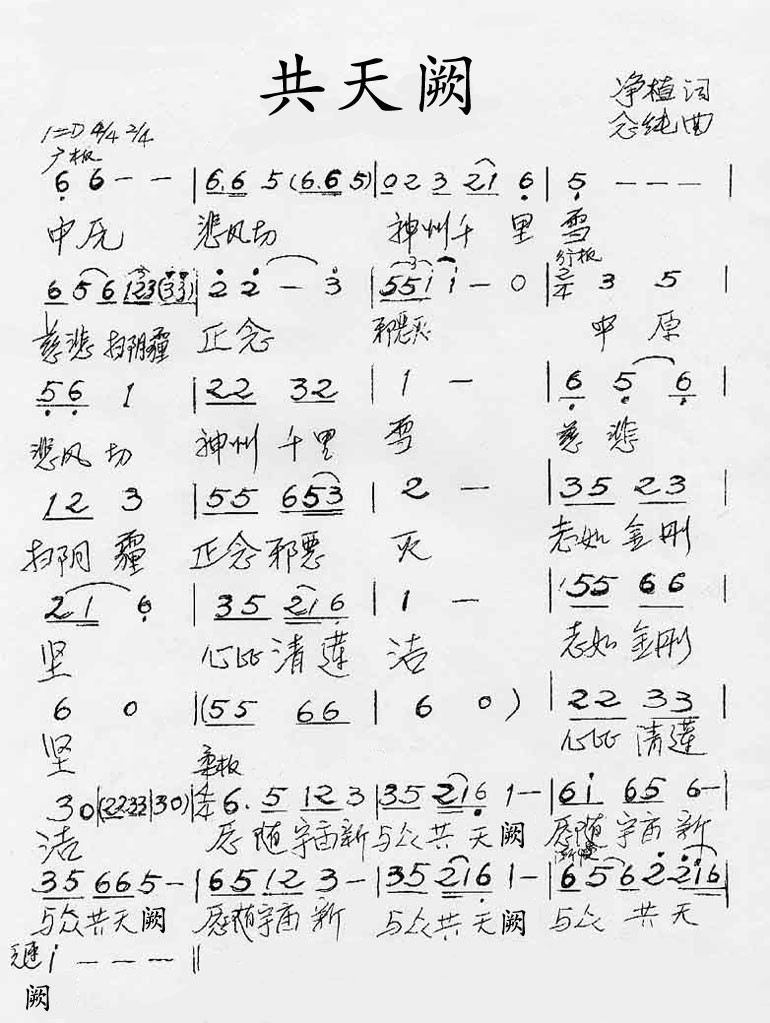 共天阙
净植词
念纯曲
1=D 4/4 2/4
广板
6 6 - - | 6.6 5 (6.6 5) | 0 2 3 21 6 | 5 - - - |
中原 悲风切 神州千里雪
行板
6 5 6 123 (33) | 2 2 - 3 | 55i i - 0 | 2/4 3 5 |
慈悲扫阴霾 正念 邪恶灭 中原
56 1 | 22 32 | 1 - | 6 5 6 |
悲风切 神州千里 雪 慈悲
12 3 | 55 653 | 2 - | 35 23 |
扫阴霾 正念邪恶 灭 志如金刚
21 6 | 35 216 | 1 - | 55 66 |
坚 心比清莲 洁 志如金刚
6 0 | (55 66 | 6 0 ) | 22 33 |
坚 心比清莲
柔板
30 | (2233 | 30) | 4/4 6. 5 12 3 | 35 216 1 - | 6i 65 6 - |
洁 愿随宇宙新 与众共天阙 愿随宇宙新
渐慢
35 66 5 - | 65 12 3 - | 35 216 1 - | 6 5 6 2 216 |
与众共天阙 愿随宇宙新 与众共天阙 与众共天
i - - - ‖
阙